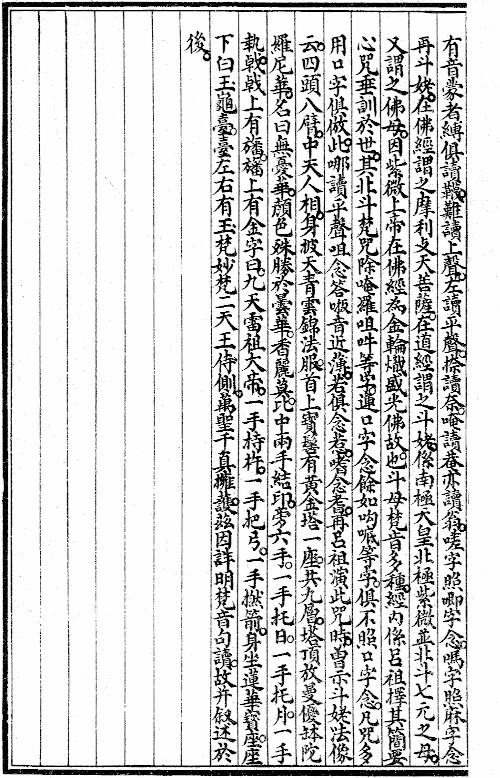 有音蒙者縛俱讀鞿難讀上聲左讀平聲捺讀奈唵讀菴亦讀翁嗟字照唧字念嗎字照麻字念
再斗姥在佛經謂之摩利支天菩薩在道經謂之斗姥係南極天皇北極紫微並北斗七元之母
又謂之佛母因紫微上帝在佛經為金輪熾盛光佛故也斗母梵音多種經內係呂祖擇其簡要
心咒垂訓於世其北斗梵咒除唵羅咀吽等字連口字念餘如呴嘁等字俱不照口字念凡咒多
用口字俱倣此哪讀乎聲咀念答嚩音近薄若俱念惹嗜念耆再呂祖演此咒時曾示斗姥法像
云四頭八臂中天人相身披天青雲錦法服首上寶髻有黃金塔一座共九層塔頂放曼優缽陀
羅尼華名曰無憂華顏色殊勝於曇華香麗莫比中兩手結印旁六手一手托日一手托月一手
執戟戟上有旛旛上有金字曰九天雷祖大帝一手持杵一手把弓一手撚箭身坐蓮華寶座座
下曰玉龜臺臺左右有玉梵妙梵二天王侍側萬聖千真擁護茲因詳明梵音句讀故并敘述於
後